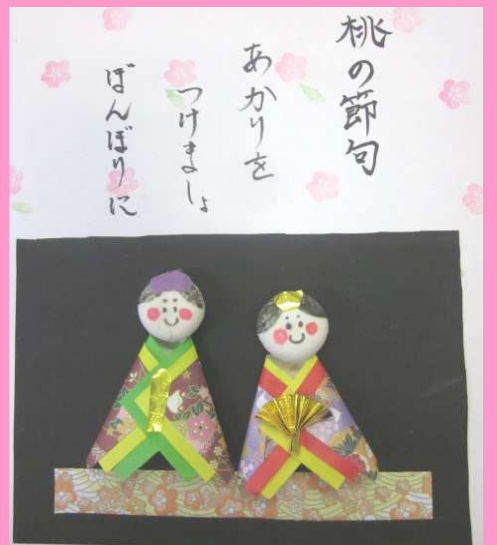 桃の節句
あかりを
つけましょ
ぼんぼりに